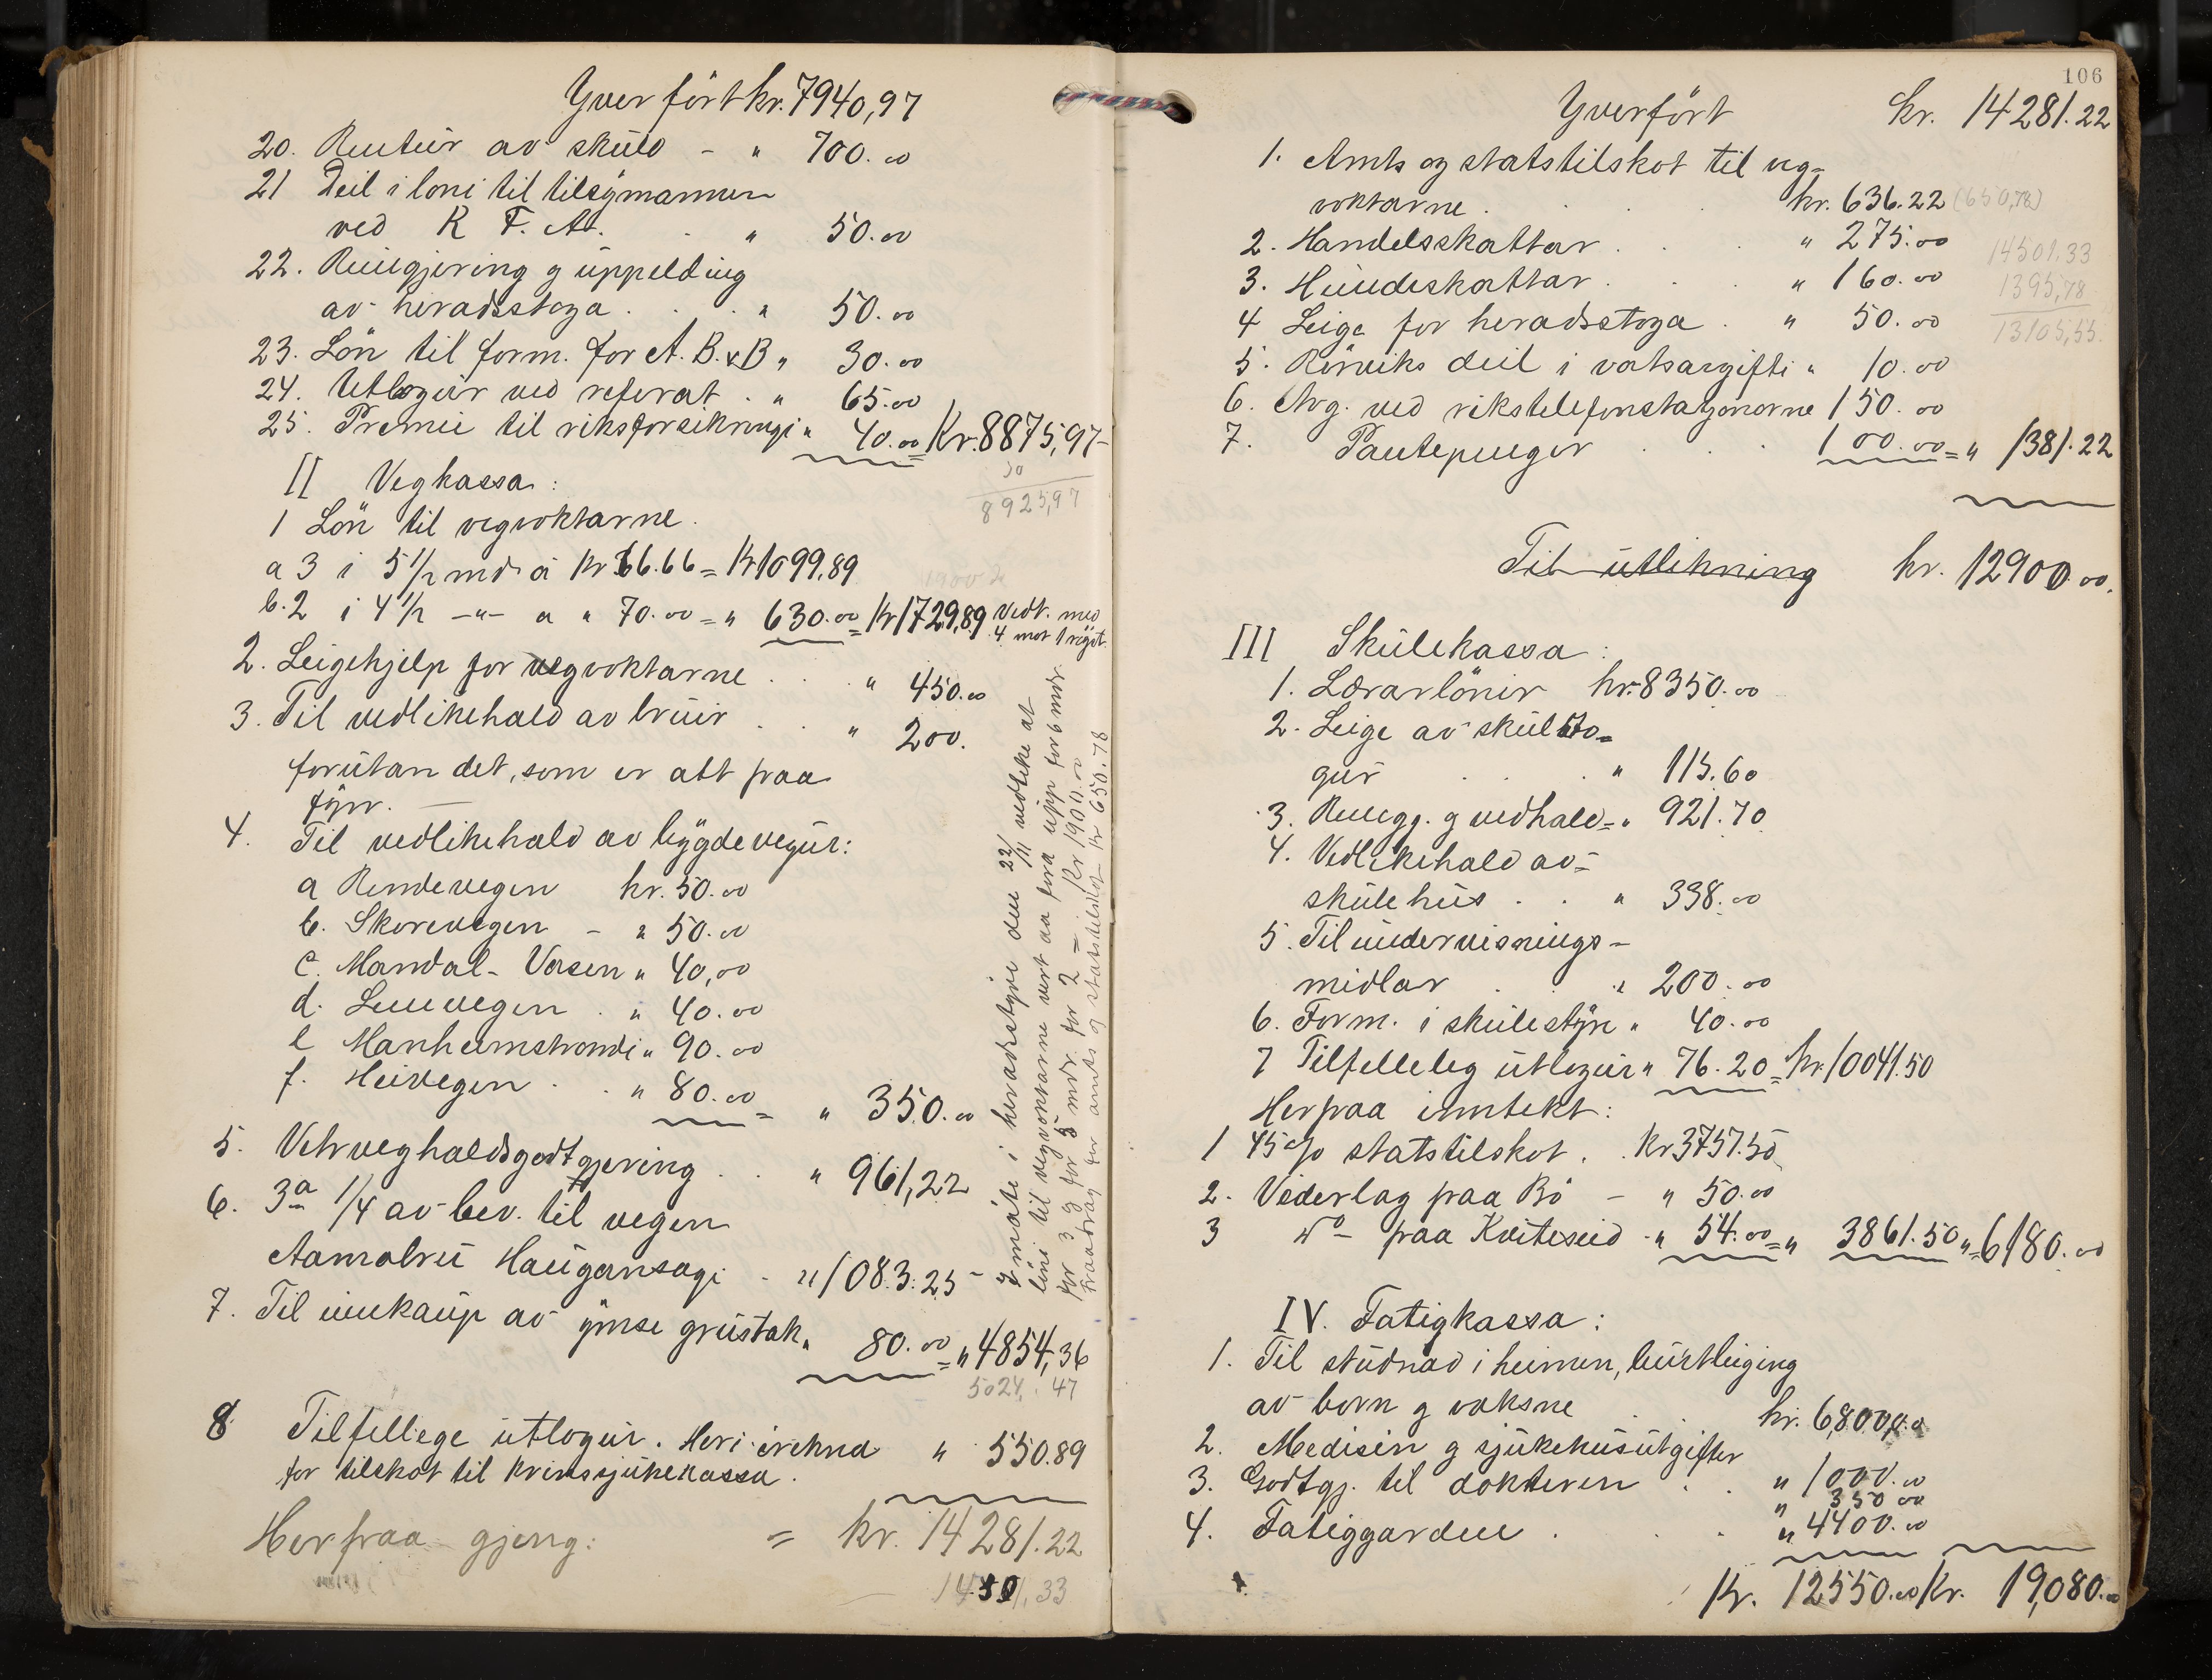 Yverfört kr. 7940,97
20. Rentur av skuld - " 700.00
21 Deil i löni til tilsynsmannen
ved K F. At. . " 50.00
22. Reingjering og uppelding
av heradsstoga . . . " 50.00
23. Lön til form. for A. B. & B " 30.00
24. Utlogur ved referat . " 65.00
25. Premie til riksforsikringi " 40.00 = Kr. 8875,97
50
8925,97
II Vegkassa:
1 Lön til vegvoktarne.
a 3 i 5 1/2 md. à Kr 66.66 = Kr 1099,89
b. 2 i 4 1/2 -"- a " 70.00 = " 630.00 = Kr 1729,89 Vedt. med
4 mot 1 røyst.
2. Leigehjelp for vegvoktarne . . . " 450.00
3. Til vedlikehald av bruir . . " 200.
forutan det, som er att fraa
fyrr.
4. Til vedlikehald av bygdevegur:
a Rendevegen kr. 50.00
b. Skorevegen - " 50.00
c. Mandal - Vasen " 40,00
d. Leuevegen . " 40.00
e Manheimstrondi " 90.00
f. Heivegen . . " 80.00 = " 350.00
5. Vetrveghaldsgodtgjering . . " 961,22
6. 3a 1/4 av bev. til vegen
Aamotbru Haugansagi - " 1083.25
7. Til innkaup av ymse grustak " 80.00 = " 4854,36
5024,47
8 Tilfellege utlogur. Heri irekna " 550.89
for tilskot til krinssjukekassa.
Herfraa gjeng: = kr. 14281.22
14501,33
I möte i heradsstyre den 22/III vedtike at
löni til vegvoktarne vert aa föra upp for 6 mdr.
for 3 og for 5 mdr. for 2 = Kr 1900.00
Fraadrag for amts og statstilskot Kr 650.78
106
Yverfört kr. 14281.22
1. Amts og statstilskot til veg=
voktarne . . . . kr. 636.22 (650,78)
2. Handelsskattar . . " 275.00
14501,33
3. Hundeskattar . . " 160.00
1395,78
4 Leige for heradsstoga . " 50.00
13105,55.
5. Rörviks deil i vatsavgifti " 10.00
6. Avg. ved rikstelefonstasjonarne 150.00
7. Pantepengar . . 100.00 = " 1381.22
Til utlikning kr. 12900.00.
III Skulekassa:
1. Lærarlönir kr. 8350.00
2. Leige av skulsto=
gur . . " 115.60
3. Reingj. og vedhald = " 921.70
4. Vedlikehald av=
skulehus . . " 338.00
5. Til undervisnings-
midlar . . " 200.00
6. Form. i skulestyre " 40.00
7 Tilfelleleg utlogur " 76.20 = kr. 10041.50
Herfraa inntekt:
1 45 % statstilskot . . Kr 3757.50
2. Vederlag fraa Bö - " 50.00
3 do - fraa Kviteseid - " 54.00 = " 3861.50 " = 6180.00
IV. Fatigkassa:
1. Til studnad i heimen, burtleiging
av born og vaksne . . kr. 6,800,00
2. Medisin og sjukehusutgifter
" 1000.00
3. Godtgj. til dokteren . . " 350 00
4. Fatiggarden . . . " 4400.00
Kr. 12550.00 Kr. 19,080.00